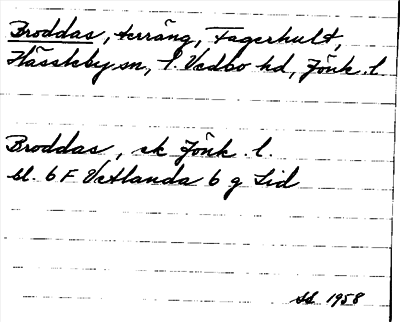 Broddas, terräng, Fagerhult,
Hässleby sn, S. Vedbo hd, Jönk. l
Broddas, ek Jönk. l.
bl. 6 F Vetlanda 6 g Lid
SS 1958